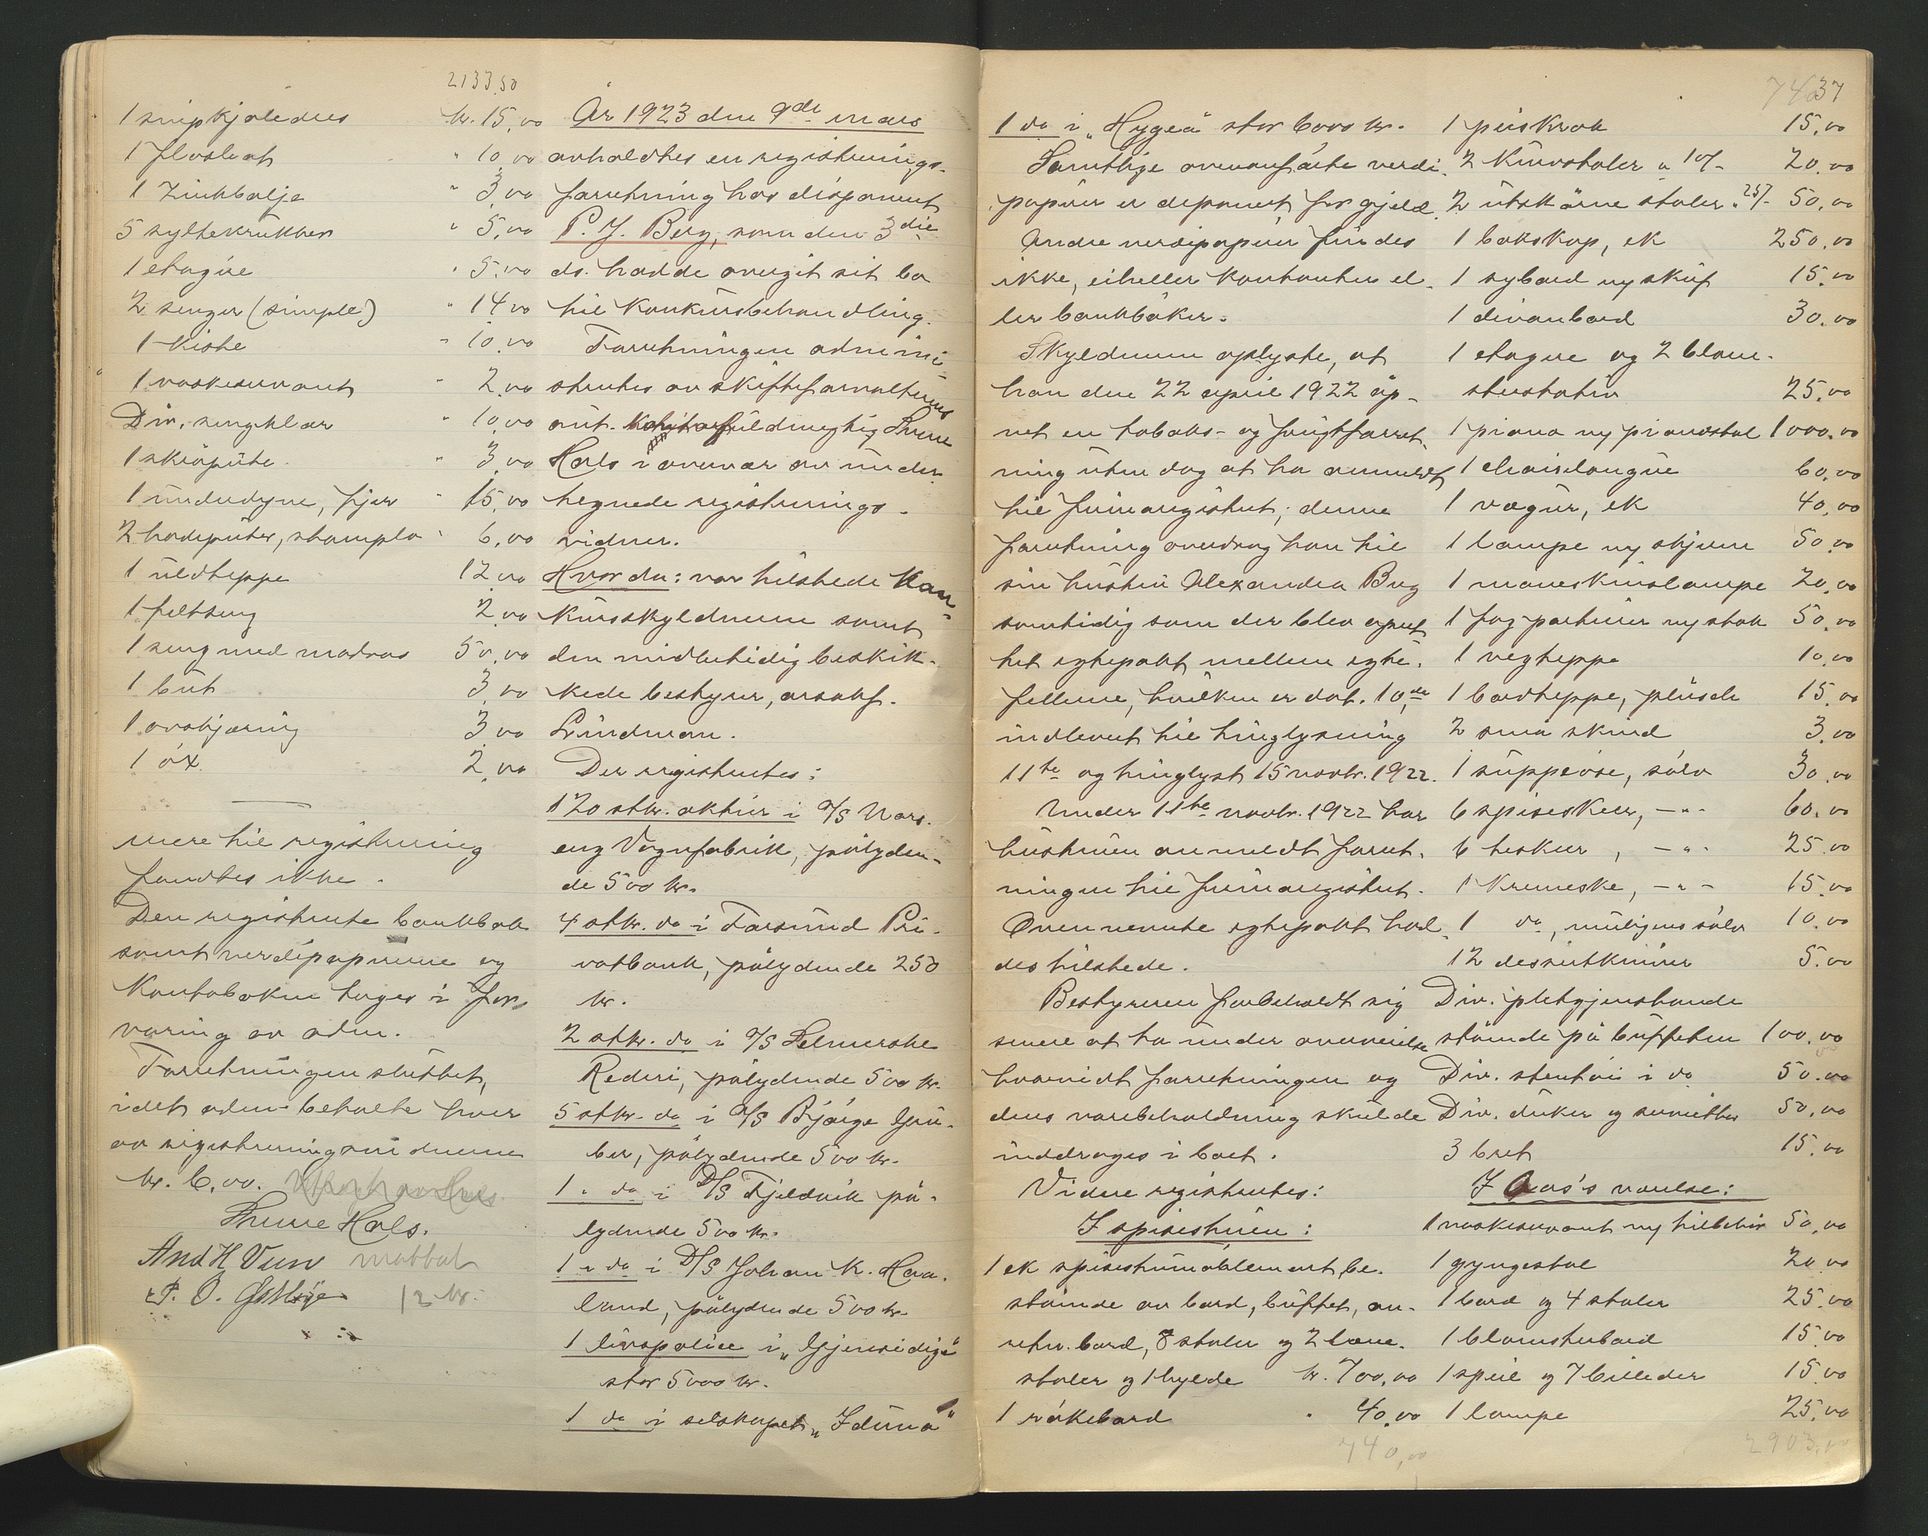 2133.50
1 snipkjoledres kr. 15,00
1 floshat " 10,00
1 Zinkbalje " 3,00
5 syltekrukker " 5,00
1 etagère " 5,00
2 senger (simple) " 14,00
1 kiste " 10,00
1 vaskeservant " 2,00
Div. sengklær " 10,00
1 skråpute " 3,00
1 underdyne, fjær " 15,00
2 hodeputer, stoppla " 6,00
1 uldteppe 12,00
1 feltseng 2,00
1 seng med madras 50,00
1 but 3,00
1 ovnskjæring 3,00
1 öx 2,00
mere til registrering
fandtes ikke.
Den registrerte bankbok
samt verdipapirerne og
kontobøken toges i for-
varing av adm.
Forretningen sluttet,
idet adm. betalte hver
av registreringsvidnerne
kr. 6,00.
Sverre Hals.
And H Veum
P. O. Gjettsjø
12 kr.
År 1923 den 9de mars
avholdtes en registrerings-
forretning hos disponent
P. J. Berg, som den 3die
ds. hadde overgit sit bo
til konkursbehandling.
Forretningen admini-
strertes av skifteforvalterens
aut. fuldmegtig Sverre
Hals i overvær av under-
tegnede registrerings-
vidner.
Hvorda: var tilstede kon-
kursskyldneren samt
den midlertidig beskik-
kede bestyrer, orsakf.
Lindman.
Der registrertes:
120 stkr. aktier i A/S Nors-
eng Vognfabrik, pålyden-
de 500 kr.
4 stkr. do i Farsund Pri-
vatbank, pålydende 250
kr.
2 stkr. do i A/S Selmerske
Rederi, pålydende 500 kr.
5 stkr. do i A/S Bjørge Gru-
ber, pålydende 500 kr.
1 " do i D/S Fjeldvik på-
lydende 500 kr.
1 " do i D/S Johan K. Haa-
land, pålydende 500 kr.
1 livspolice i "Gjensidige"
stor 5000 kr.
1 do i selskapet "Iduna"
37
1 do i "Hygea" stor 6000 kr.
Samtlige ovenanførte verdi-
papirer er deponert for gjeld.
Andre verdipapirer findes
ikke, eiheller kontanter el-
ler bankbøker.
Skyldneren oplyste, at
han den 22 april 1922 åp-
net en tobaks- og frugtforret-
ning uten dog at ha anmeldt
til firmaregistret; denne
forretning overdrog han til
sin hustru Alexandra Berg
samtidig som der blev opret-
tet egtepakt mellem egte-
fellerne, hvilken er dat. 10de
indlevert til tinglysning
11te og tinglyst 15 novbr. 1922.
Under 11te novbr. 1922 har
hustruen anmeldt forret-
ningen til firmaregistret.
Ovennevnte egtepakt hol-
des tilstede.
Bestyreren forbeholdt sig
senere at ta under overveielse
hvorvidt forretningen og
dens varebeholdning skulde
inddrages i boet.
Videre registrertes:
I spisestuen:
1 ek spisestumøblement be-
stående av bord, buffet, an-
retn. bord, 8 stoler og 2 læne-
stoler og 1 hylde kr. 700,00
1 røkebord " 40,00
740,00
1 peiskrok 15,00
2 kurvstoler a 10/- 20,00
2 utskårne stoler a 25/- 50,00
1 bokskap, ek 250,00
1 sybord m/ skuf 15,00
1 divanbord 30,00
1 etagere og 2 blom-
sterstativ 25,00
1 piano m/ pianostol 1000,00
1 chaiselongue 60,00
1 vægur, ek 40,00
1 lampe m/ skjerm 50,00
1 maneskinslampe 20,00
1 fag portierer m/ stok 50,00
1 vegteppe 10,00
1 bordteppe, plüsch 15,00
2 små skind 3,00
1 suppeøse, sølv 30,00
6 spiseskeer, -"- 60,00
6 teskeer, -"- 25,00
1 kremeske, -"- 15,00
1 do, muligens sølv 10,00
12 desertkniver 5,00
Div. pletgjenstande
stående på buffeten 100,00
Div. stentøi i do 50,00
Div. duker og servietter 50,00
3 bret 15,00
I 's værelse:
1 vaskeservant m/ tilbehør 50,00
1 gyngestol 20,00
1 bord og 4 stoler 25,00
1 blomsterbord 15,00
1 speil og 7 billeder 15,00
1 lampe 25,00
2903,00